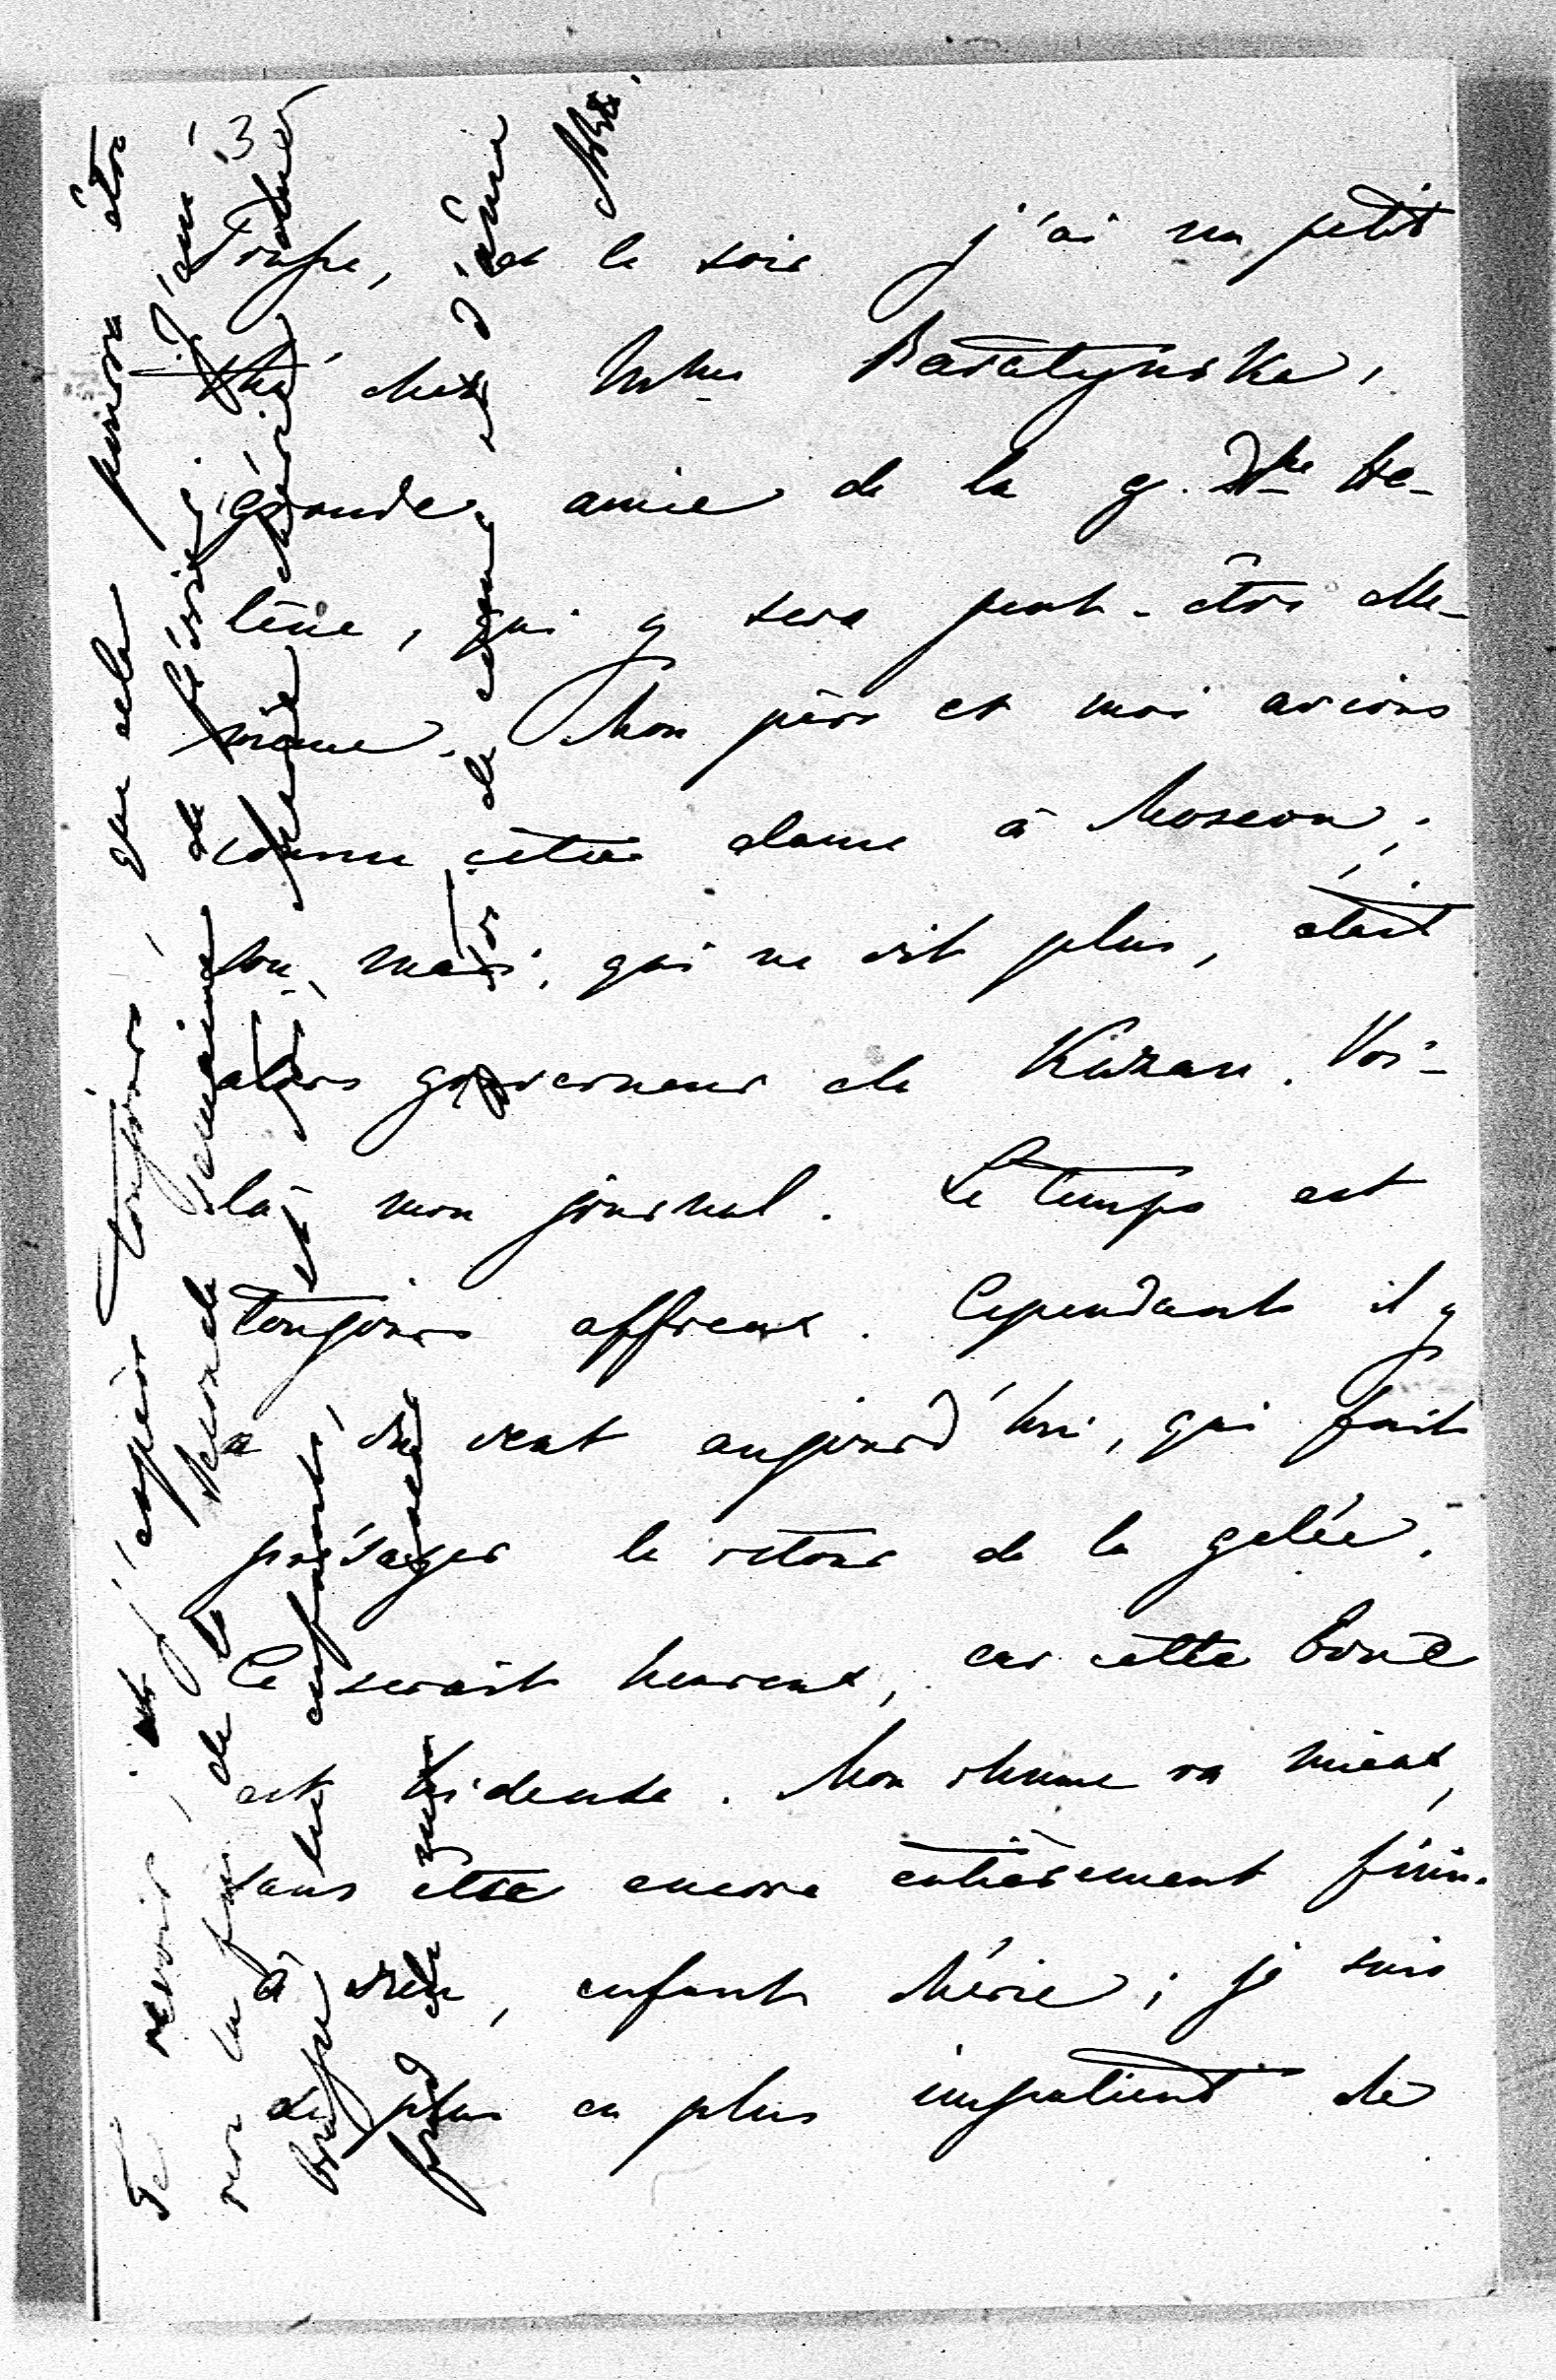 3
Troupe, et le soir j'ai un petit
thé chez Mme Baratynska,
grande amie de la g. Dsse Hé-
lène, qui y sera peut-être elle-
même. Mon père et moi avions
connu cette dame à Moscou;
son mari, qui ne vit plus, était
alors gouverneur de Kazan. Voi-
là mon journal. Le temps est
toujours affreux. Cependant il y
a du vent aujourd'hui, qui fait
présager le retour de la gelée.
Ce serait heureux, car cette boue
est hideuse. Mon rhume va mieux,
sans être encore entièrement fini.
à Dieu, enfant chérie; je suis
de plus en plus impatient de
Te revoir, et j'espère toujours que cela pourra être
vers la fin de la seconde semaine de février. J'ai
enfant chérie
de cœur et d'âme